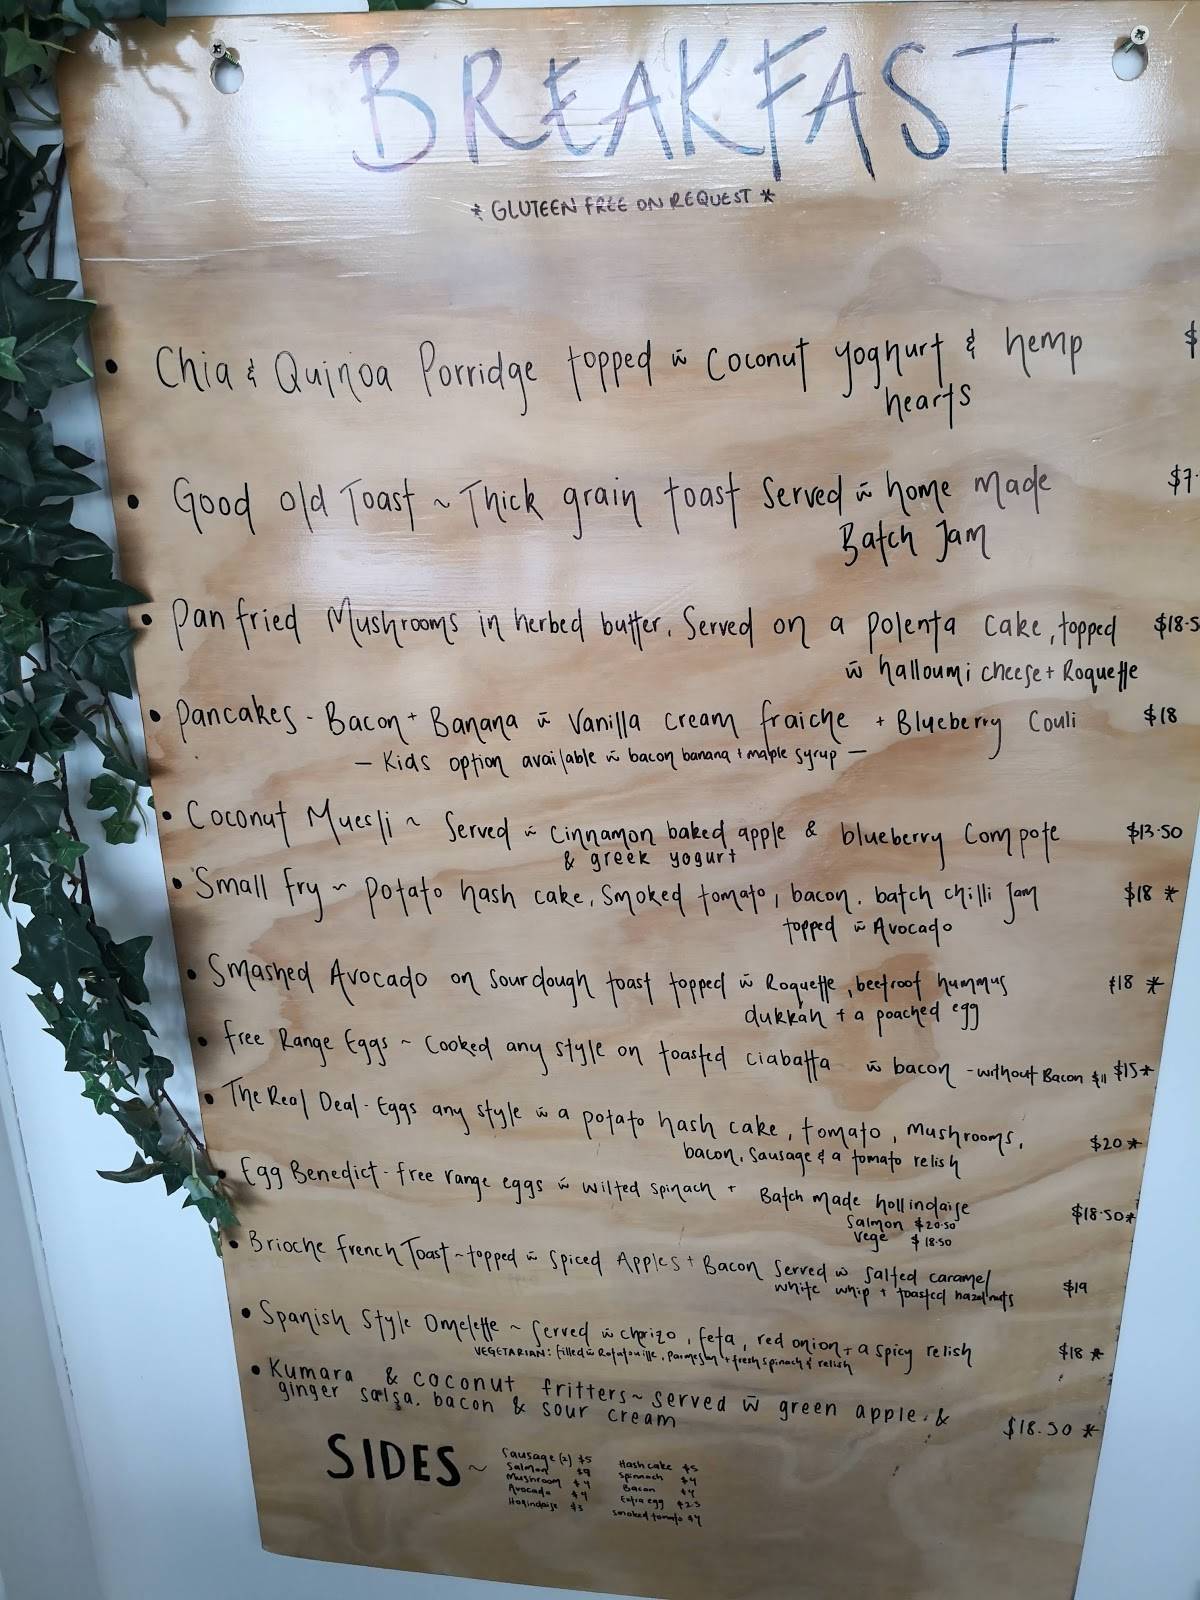 BREAKFAST
* GLUTEEN FREE ON REQUEST *
• Chia & Quinoa Porridge topped w̃ Coconut yoghurt & hemp $
hearts
• Good old Toast ~ Thick grain toast Served w̃ home made $7.
Batch Jam
• Pan fried Mushrooms in herbed butter. Served on a polenta cake, topped $18.5
w̃ halloumi cheese + Roquette
• Pancakes - Bacon + Banana w̃ Vanilla cream fraiche + Blueberry Couli $18
— Kids option available w̃ bacon banana + maple syrup —
• Coconut Muesli ~ Served w̃ cinnamon baked apple & blueberry Compote $13.50
& greek yogurt
• Small fry ~ potato hash cake, Smoked tomato, bacon. batch chilli Jam $18 *
topped w̃ Avocado
• Smashed Avocado on sourdough toast topped w̃ Roquette, beetroot hummus $18 *
dukkah + a poached egg
• Free Range Eggs ~ Cooked any style on toasted ciabatta w̃ bacon - without Bacon $11 $15 *
• The Real Deal - Eggs any style w̃ a potato hash cake, tomato, mushrooms, $20 *
bacon, Sausage & a tomato relish
• Egg Benedict - free range eggs w̃ wilted spinach + Batch made hollindaise $18.50 *
Salmon $20.50
Vege $18.50
• Brioche french Toast ~ topped w̃ Spiced Apples + Bacon Served w̃ Salted caramel $19
white whip + toasted hazelnuts
• Spanish Style Omelette ~ Served w̃ chorizo, feta, red onion + a spicy relish $18 *
VEGETARIAN: filled w̃ Ratatouille, parmesan + fresh spinach & relish
• Kumara & coconut fritters ~ served w̃ green apple & $18.50 *
ginger salsa. bacon & sour cream
SIDES ~
Sausage (2) $5 Hash cake $5
Salmon $9 Spinnach $4
Mushroom $4 Bacon $4
Avocado $4 Extra egg $2.5
Hollindaise $3 smoked tomato $4